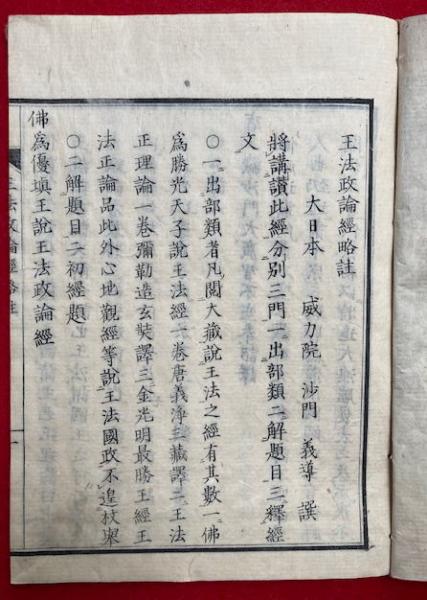 王法政論經略註
大日本　威力院　沙門　義導　撰
將講讃此經分別三門一出部類二解題目三釋經
文
〇一出部類者凡閲大藏說王法之經有其數一佛
爲勝光天子說王法經一卷唐義淨三藏譯二王法
正理論一卷彌勒造玄奘譯三金光明最勝王經王
法正論品此外心地觀經等說王法國政不遑枚擧
〇二解題目二初經題
佛爲優塡王說王法政論經
王法政論經略註
一